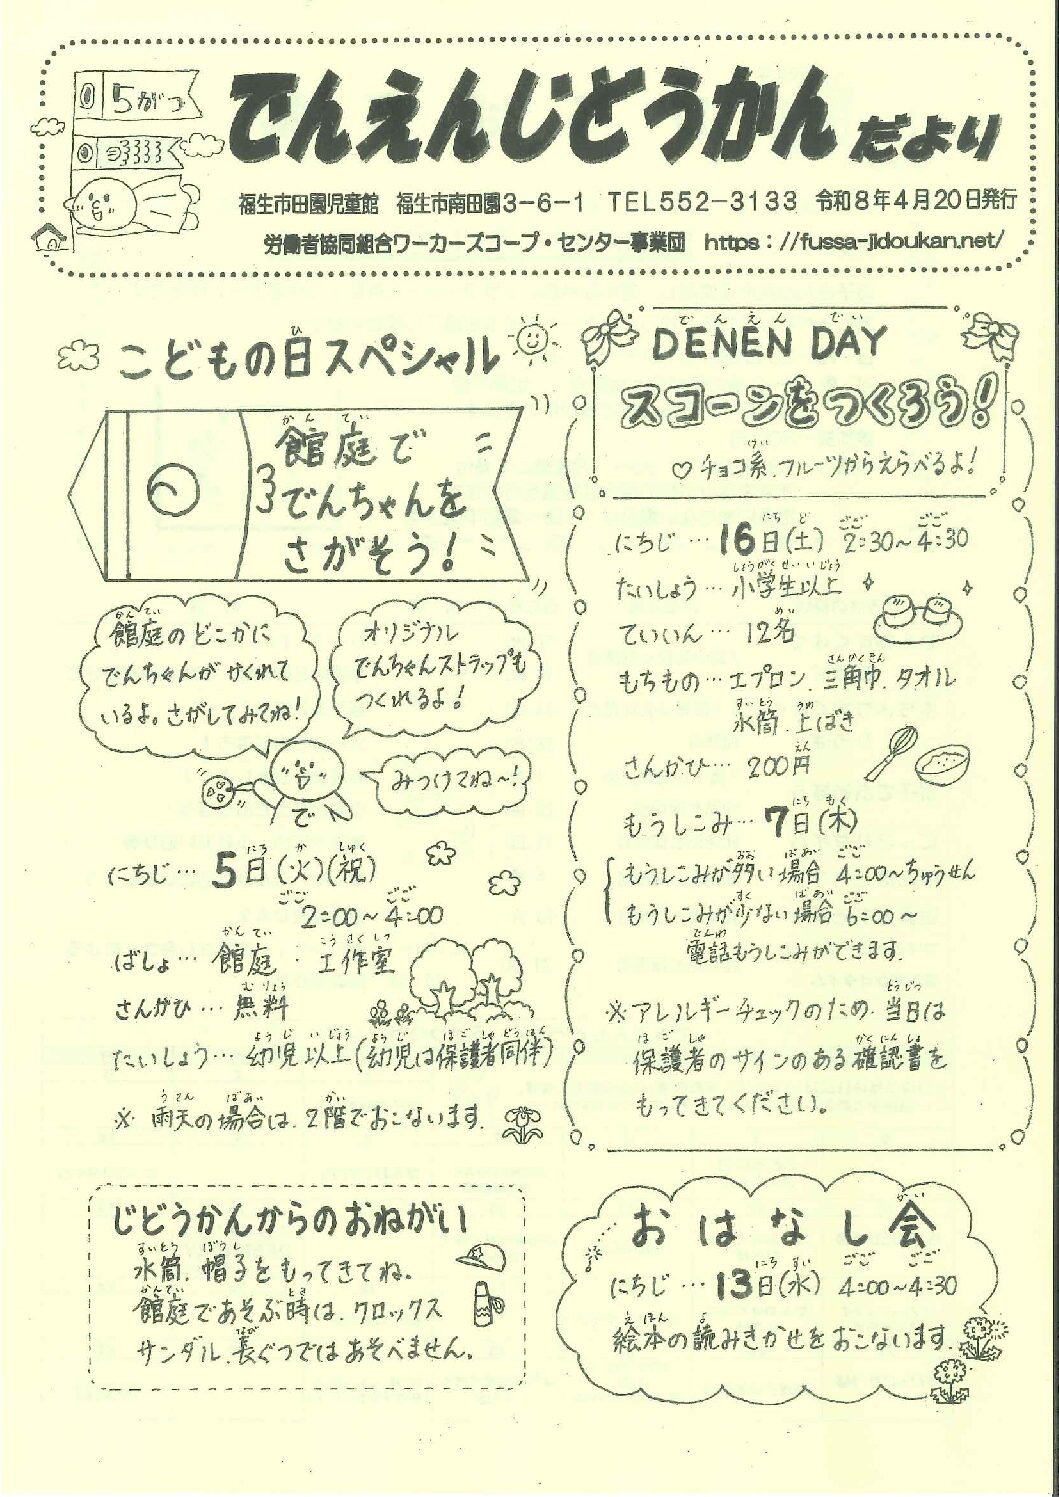 5がつ
でんえんじどうかんだより
福生市田園児童館　福生市南田園3-6-1　TEL552-3133　令和8年4月20日発行
労働者協同組合ワーカーズコープ・センター事業団　https://fussa-jidoukan.net/
こどもの日スペシャル
館庭で
でんちゃんを
さがそう！
館庭のどこかに
でんちゃんがかくれて
いるよ。さがしてみてね！
オリジナル
でんちゃんストラップも
つくれるよ！
みつけてね〜！
で
にちじ…5日(火)(祝)
2:00〜4:00
ばしょ…館庭・工作室
さんかひ…無料
たいしょう…幼児以上(幼児は保護者同伴)
※雨天の場合は、2階でおこないます。
じどうかんからのおねがい
水筒、帽子をもってきてね。
館庭であそぶ時は、クロックス
サンダル、長ぐつではあそべません。
DENEN DAY
スコーンをつくろう！
♡チョコ系、フルーツからえらべるよ！
にちじ…16日(土) 2:30〜4:30
たいしょう…小学生以上
ていいん…12名
もちもの…エプロン、三角巾、タオル
水筒、上ばき
さんかひ…200円
もうしこみ…7日(木)
もうしこみが多い場合 4:00〜ちゅうせん
もうしこみが少ない場合 6:00〜
電話もうしこみができます。
※アレルギーチェックのため、当日は
保護者のサインのある確認書を
もってきてください。
おはなし会
にちじ…13日(水) 4:00〜4:30
絵本の読みきかせをおこないます。